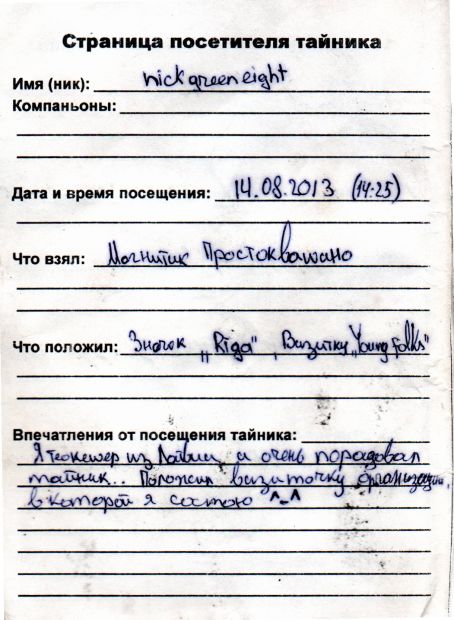 Страница посетителя тайника
Имя (ник): nickgreeneight
Компаньоны:
Дата и время посещения: 14.08.2013 (14:25)
Что взял: Магнитик Простоквашино
Что положил: Значок „Riga", Визитку „Young Folks"
Впечатления от посещения тайника:
Я геокешер из Латвии и очень порадовал
тайник.. Положил визиточку организации,
в которой я состою ^_^